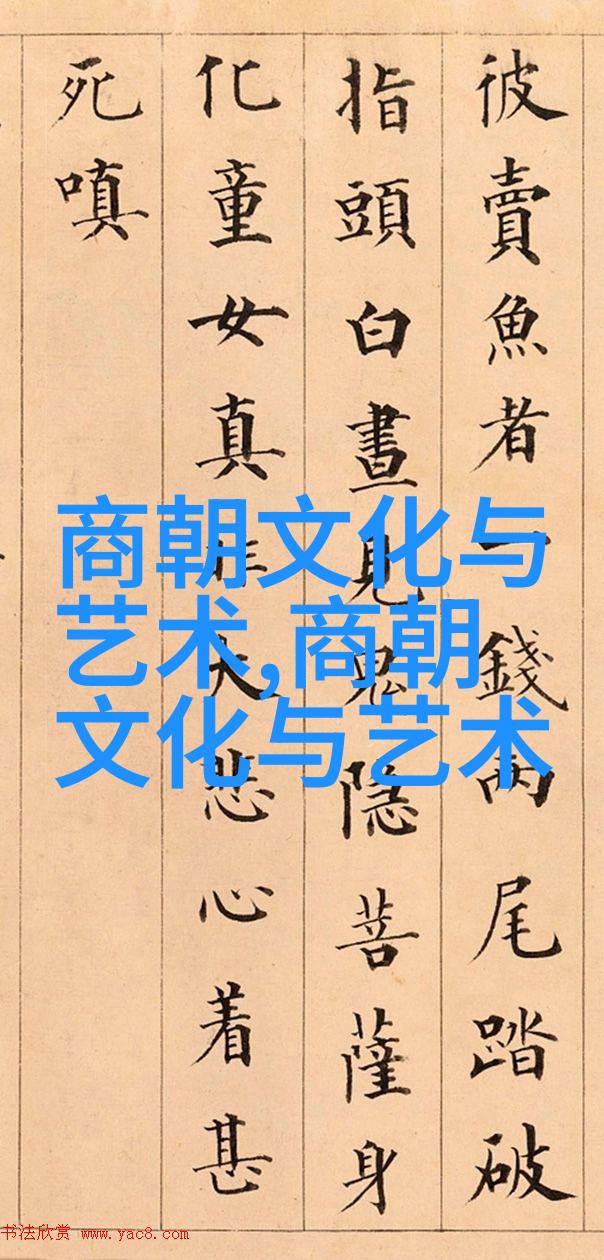 彼賣魚者一錢兩尾踏破
指頭白晝見鬼隱菩薩身
化童女真非大悲心着甚
死嗔
商朝文化与
艺术,商朝
文化与艺术
书法欣赏 www.yac8.com